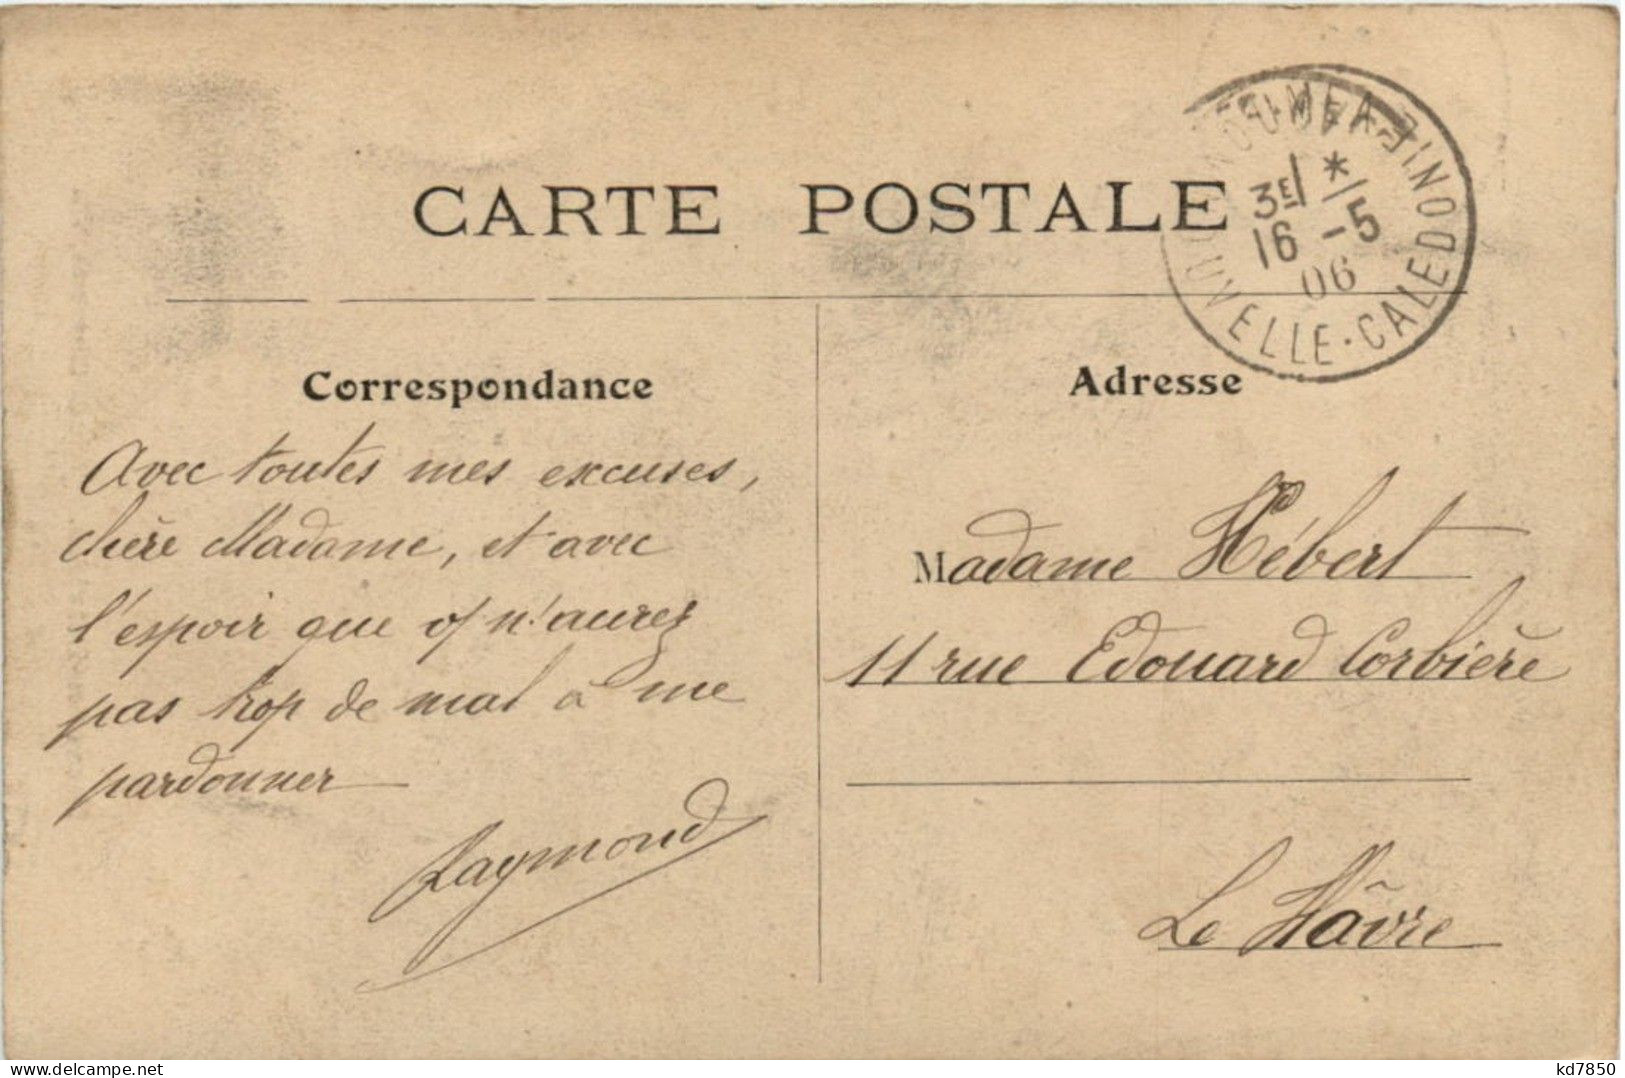 CARTE POSTALE
NOUMEA
3E
16 -5
06
NOUVELLE-CALEDONIE
Correspondance
Avec toutes mes excuses,
chère Madame, et avec
l'espoir que n'aurez
pas trop de mal à me
pardonner
Raymond
Adresse
Madame Hébert
11 rue Edouard Corbière
Le Hâvre
delcampe.net
kd7850